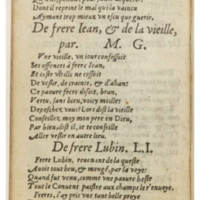 Dont il reprent le mal qui la vaincu
Aymant trop mieux vn escu que guerir.
De frere Iean, & de la vieille,
par. M. G.
Vne vieille, un iour confessoit
Ses offences à frere Iean,
Et ceste vieille ne cessoit
De vesser, de craincte, & d'ahan:
Ce pauure frere disoit, bran,
Vertu, sans bieu, voicy
Depeschez vous: Lors dist la vieille
Confessez, moy mon pere en Dieu,
Par bieu, dist il, ie recommande
Aller vessir en autre lieu.
De frere Lubin. L.I.
Frere Lubin, reuenant de la queste
Auoit tout beu, & mangé, par la voye:
Quand fut venu, comme vne pauure beste
Tout le Conuent paistre aux champs le r'enuoye.